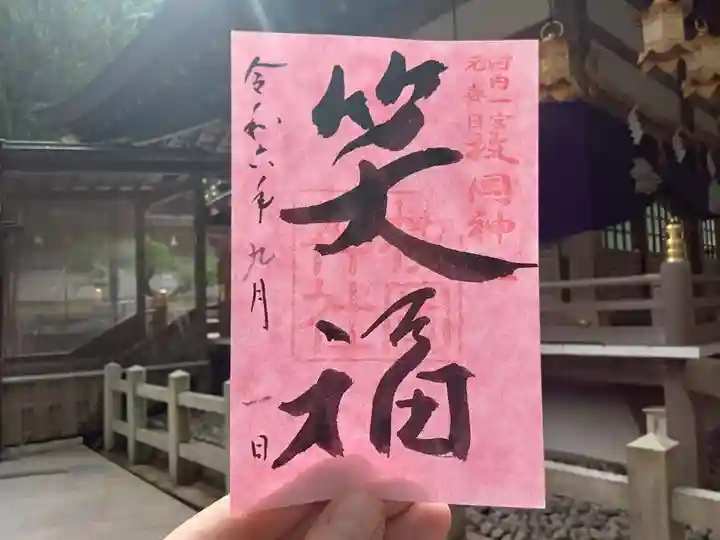 河内一宮
元春日
枚岡神社
笑福
令和六年九月一日